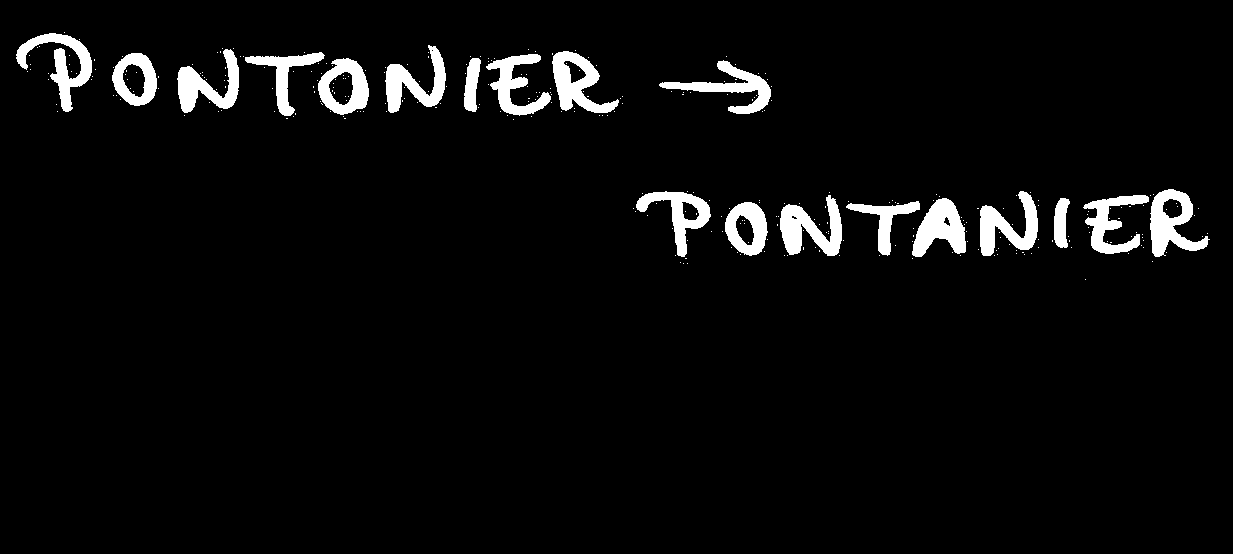 PONTONIER →
PONTANIER